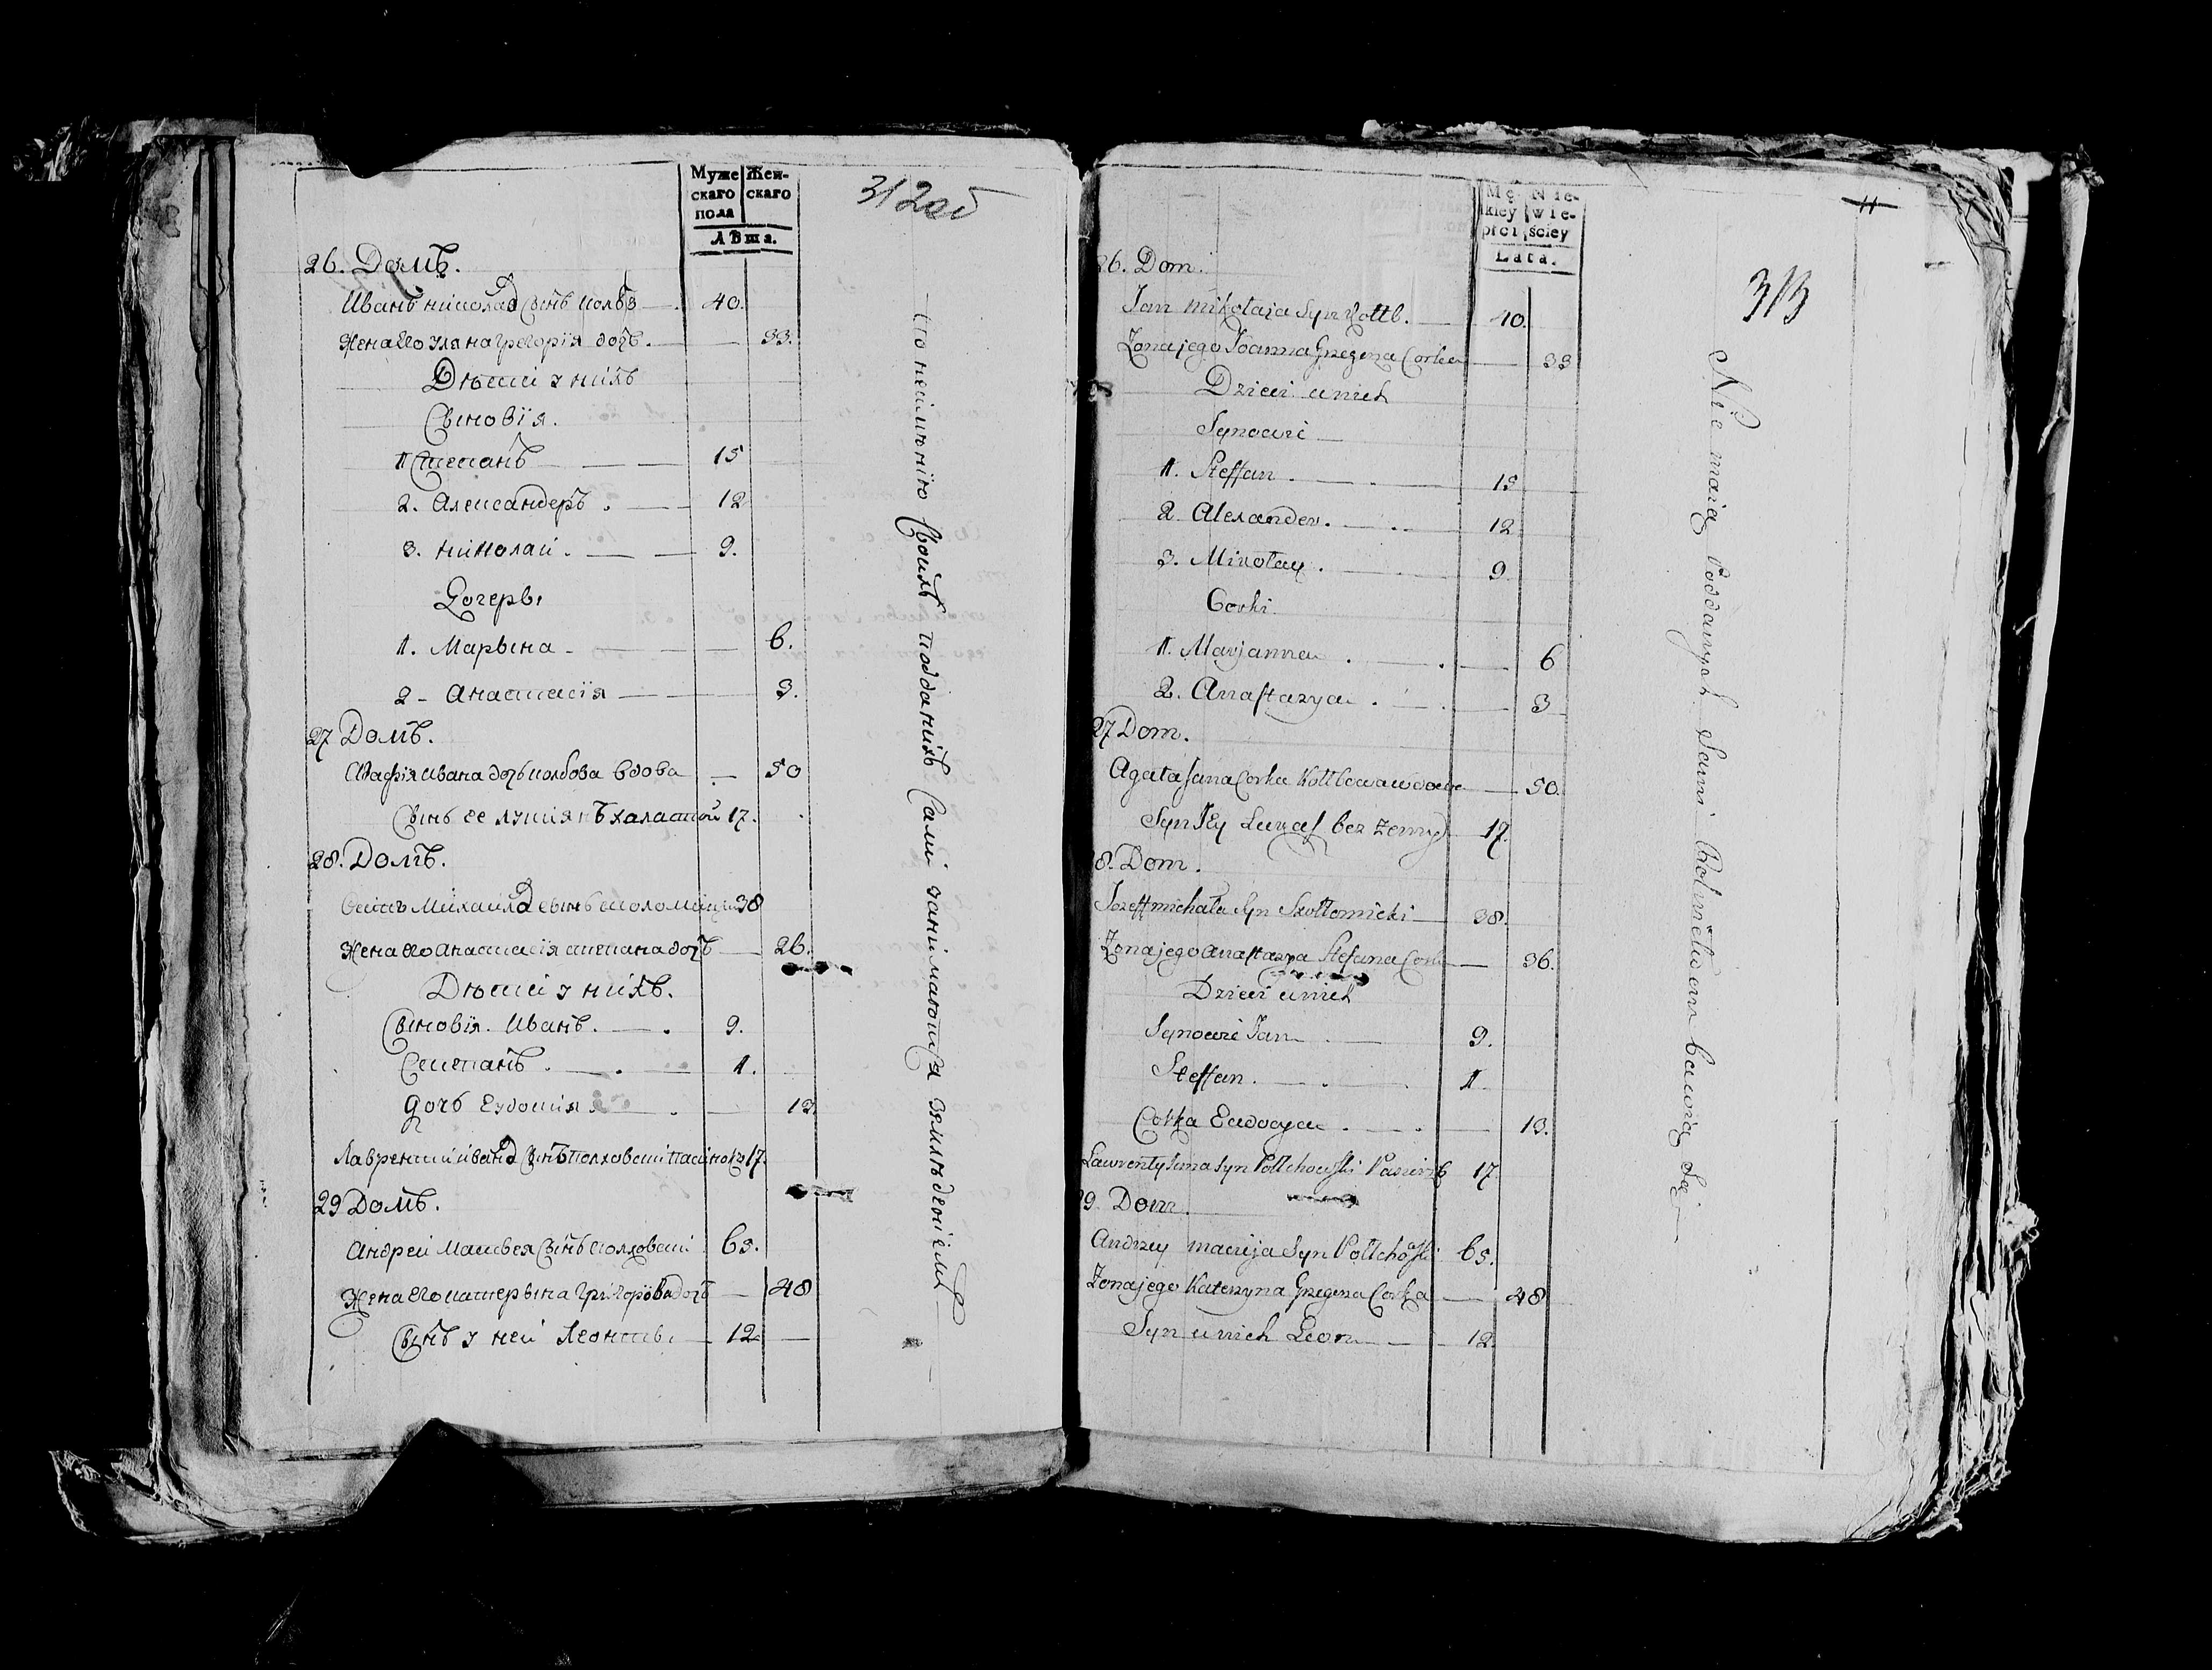 Муже
скаго
пола
Жен-
скаго
Лѣта.
312об
26. Домъ.
Иванъ николая Сынъ колбъ 40.
Жена его уляна Григорія дочъ. 33.
Дѣти у нихъ
Сыновія.
1 Степанъ 15
2. Александеръ. 12
3. николай. 9.
Дочеры
1. Марьяна 6.
2 - Анастасія 3.
27 Домъ.
Агафія ивана дочь колбова вдова 50
Сынъ ее лукіянъ халастой 17.
28. Домъ.
Осипъ Михаила сынъ сколомицки 38
Жена его Анастасія степана дочъ 26.
Дѣти у нихъ.
Сыновія. Иванъ. 9.
Степанъ. 1.
дочь Еудокія 13.
Лаврентии ивана сынъ полховски пасинокъ 17.
29 Домъ.
Андреи Матвея Сынъ полховски 65.
Жена его катерына Григорова дочъ 48
Сынъ у неи Леонъ 12
по неимѣнію Своихъ подданихъ Сами занимаются земледеліемъ
Mę
kiey
płci
Nie-
wie-
ściey
Lata.
11
313
26. Dom.
Jan mikołaja Syn Kołtb. 40.
Zona jego Joanna Grzegorza Corka 33
Dzieci u nich
Synowie
1. Steffan. 15
2. Alexander. 12
3. Mikołay. 9
Corki.
1. Marjanna. 6
2. Anastazya. 3
27 Dom.
Agata Jana Corka Kołtbowa wdowa 50.
Syn Jey Lukasz bez zenny 17.
8. Dom.
Jozeff michała Syn Skołtomicki 38.
Zona jego Anastazya Stefana Corka 36.
Dzieci u nich
Synowie Jan 9.
Steffan. 1
Corka Eudocya. 13.
Lawrenty Jana Syn Połtchowski Pasierb 17
9. Dom.
Andrzey macieja Syn Połtchowski 65.
Zona jego Katerzyna Grzegorza Corka 48
Syn u nich Leon 12
Nie maią Poddanych Sami Rolnictwem bawią Się